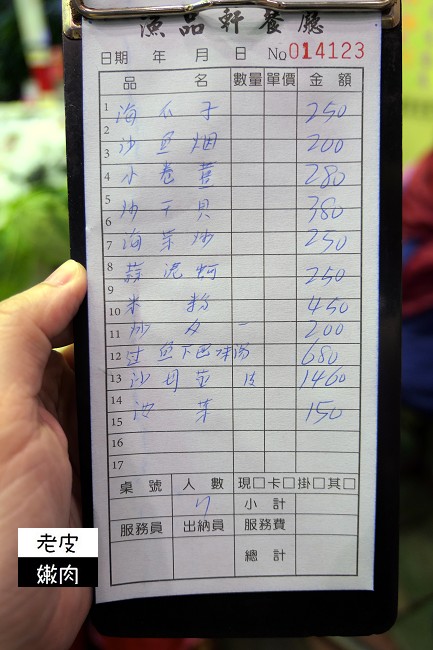 漁品軒餐廳
日期 年 月 日 No014123
品 名 數量 單價 金額
1 海瓜子 250
2
3 沙魚烟 200
4 小卷薑 280
5
6 炒干貝 380
7 海菜炒 250
8 蒜泥蚵 250
9
10 米粉 450
11 200
12 过魚下巴味 680
13 沙母 1460
14
15 菜 150
16
17
桌號 人數 現□卡□掛□其□
小計
服務員 出納員 服務費
總計
老皮
嫩肉